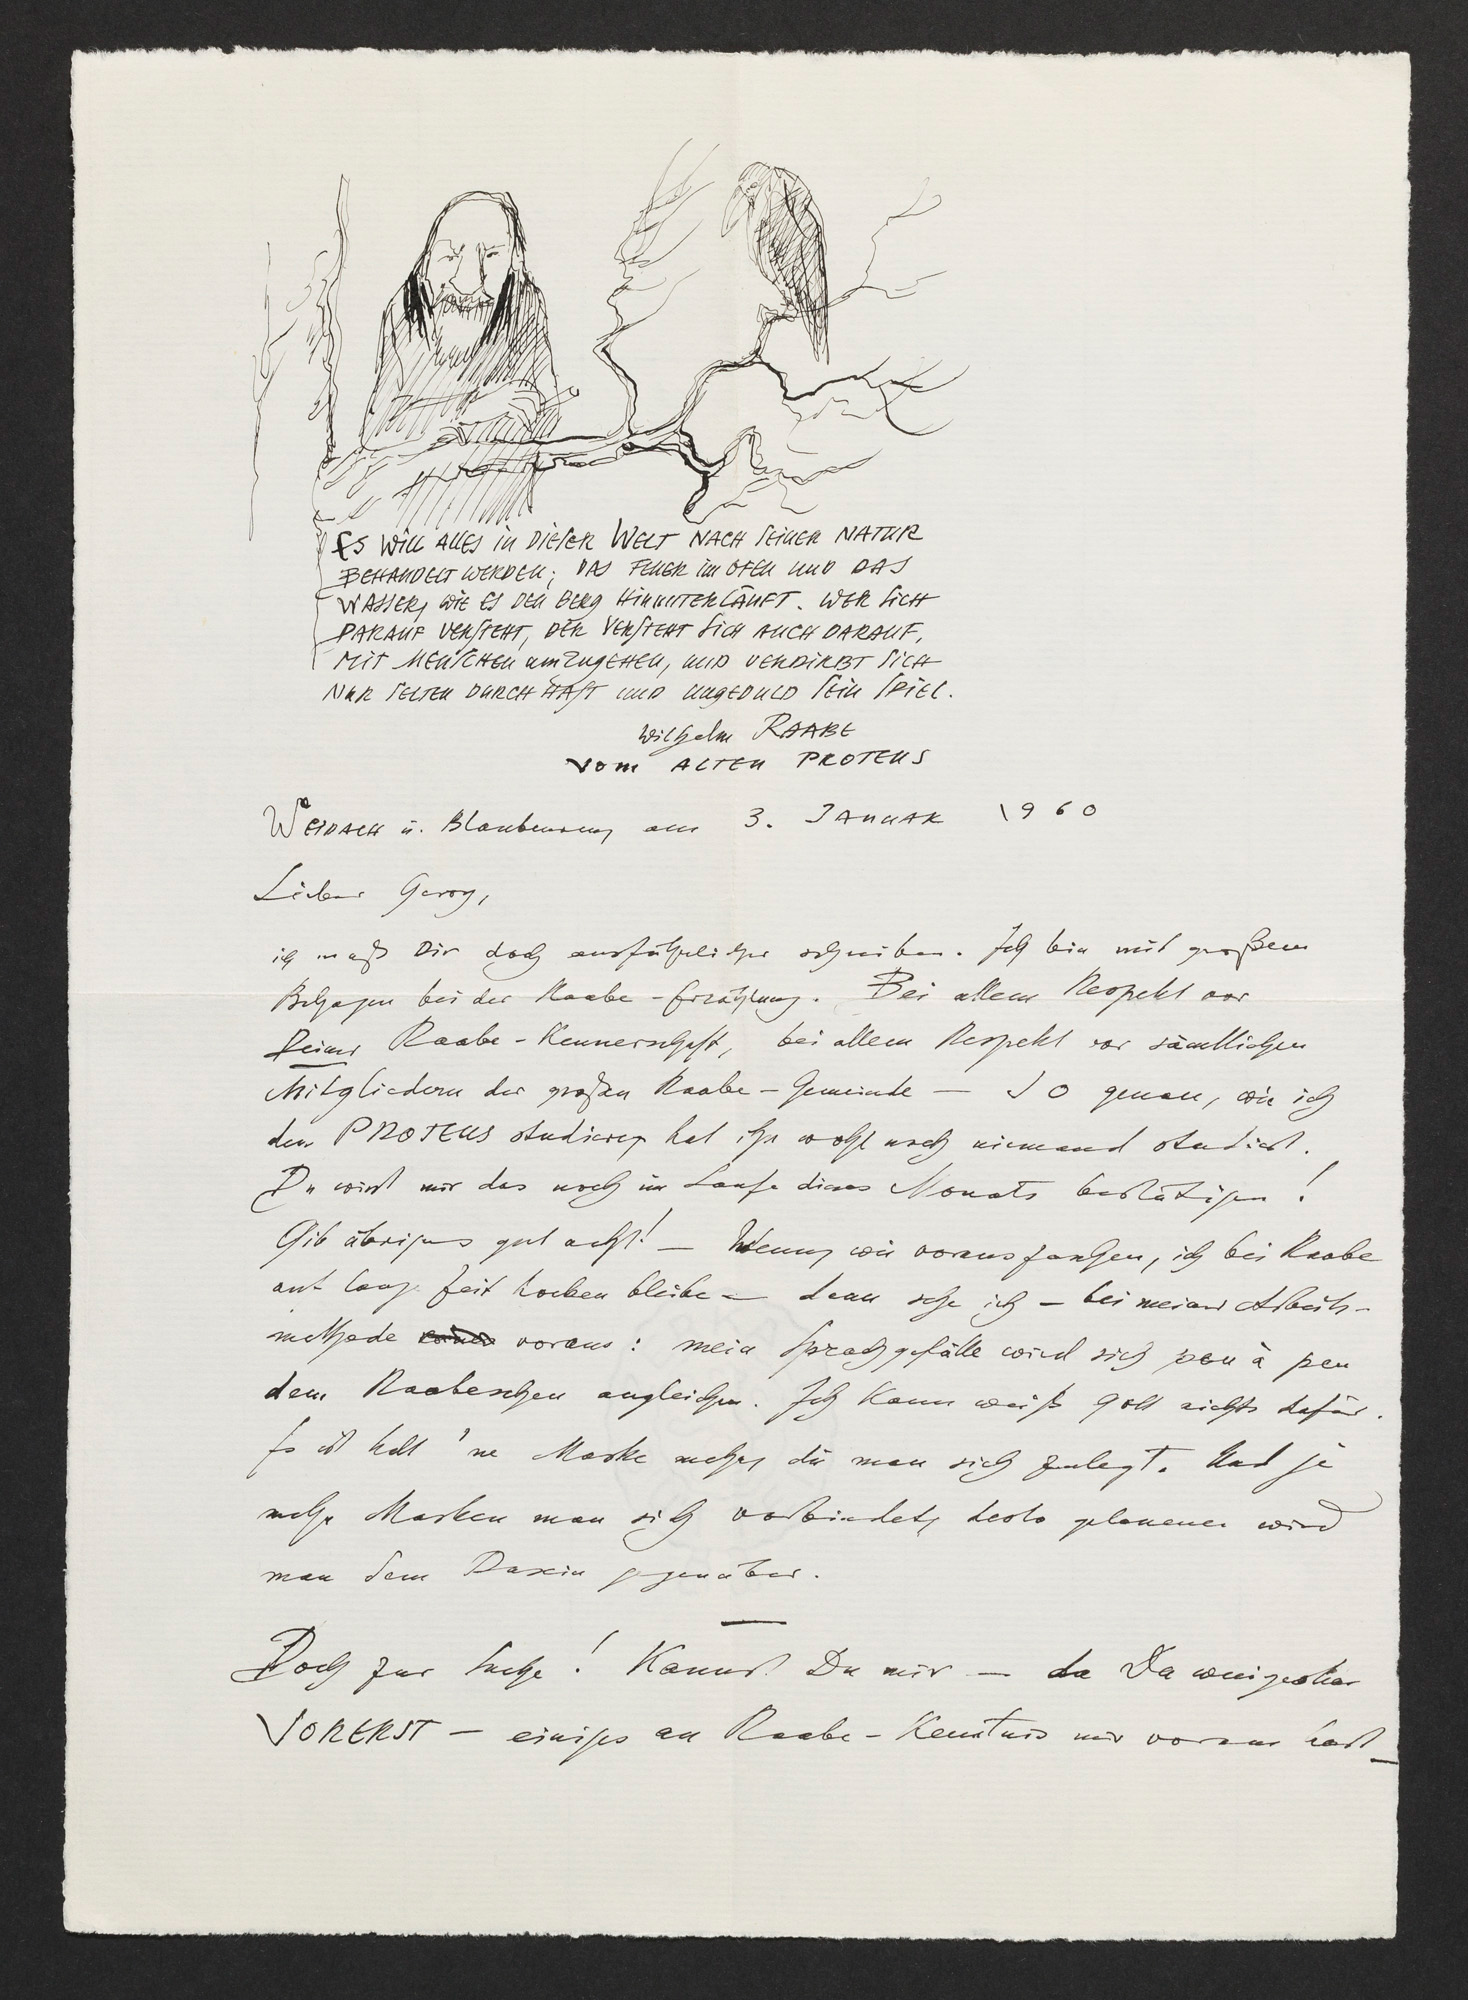 ES WILL ALLES IN DIESER WELT NACH SEINER NATUR
BEHANDELT WERDEN; DAS FEUER IM OFEN UND DAS
WASSER, WIE ES DEN BERG HINUNTERLÄUFT. WER SICH
DARAUF VERSTEHT, DER VERSTEHT SICH AUCH DARAUF,
MIT MENSCHEN UMZUGEHEN, UND VERDIRBT SICH
NUR SELTEN DURCH HAST UND UNGEDULD SEIN SPIEL.
Wilhelm RAABE
VOM ALTEN PROTEUS
WEIDACH ü. Blaubeuren am 3. JANUAR 1960
Lieber Georg,
ich muß Dir doch ausführlicher schreiben. Ich bin mit großem
Behagen bei der Raabe-Erzählung. Bei allem Respekt vor
Deiner Raabe-Kennerschaft, bei allem Respekt vor sämtlichen
Mitgliedern der großen Raabe-Gemeinde — SO genau, wie ich
den PROTEUS studiere, hat ihn wohl noch niemand studiert.
Du wirst mir das noch im Laufe dieses Monats bestätigen!
Gib übrigens gut acht! — Wenn, wie vorauszusehen, ich bei Raabe
auf lange Zeit hocken bleibe — denn sehe ich — bei meiner Arbeits-
methode voraus: mein Sprachgefälle wird sich peu à peu
dem Raabeschen angleichen. Ich kann weiß Gott nichts dafür.
Es ist halt 'ne Maske mehr, die man sich zulegt. Und je
mehr Masken man sich vorbindet, desto gelassener wird
man dem Dasein gegenüber.
Doch zur Sache! Kannst Du mir — da Du wenigstens
VORERST — einiges an Raabe-Kenntnis mir voraus hast —